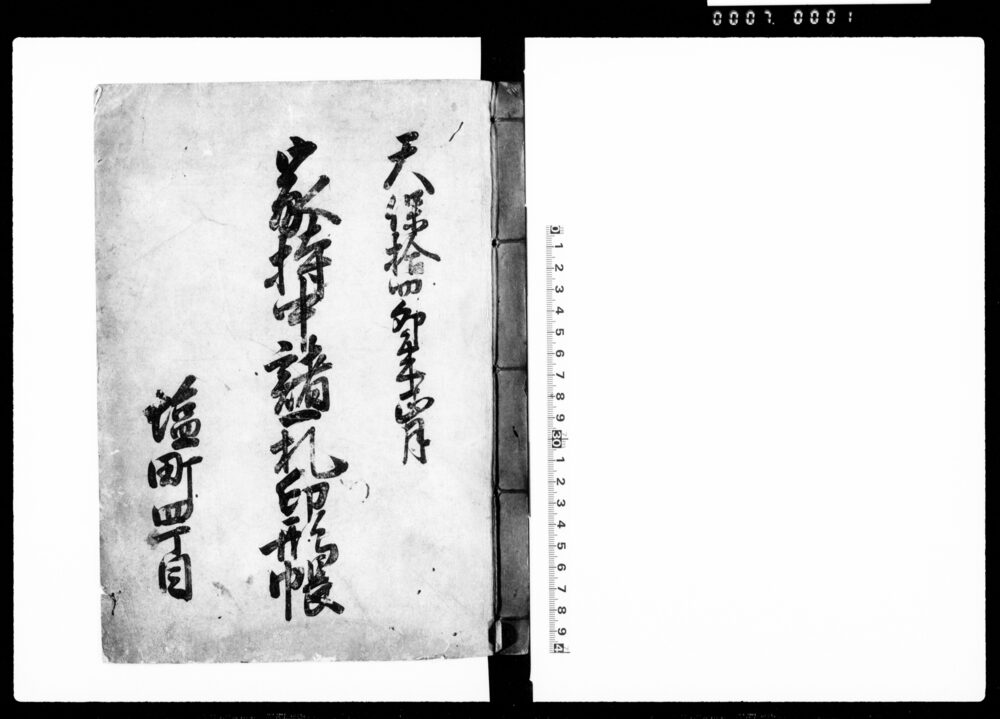 0007 0001
天保拾四卯年正月
家持中諸一札印形帳
塩町四丁目
0 1 2 3 4 5 6 7 8 9 30 1 2 3 4 5 6 7 8 9 4